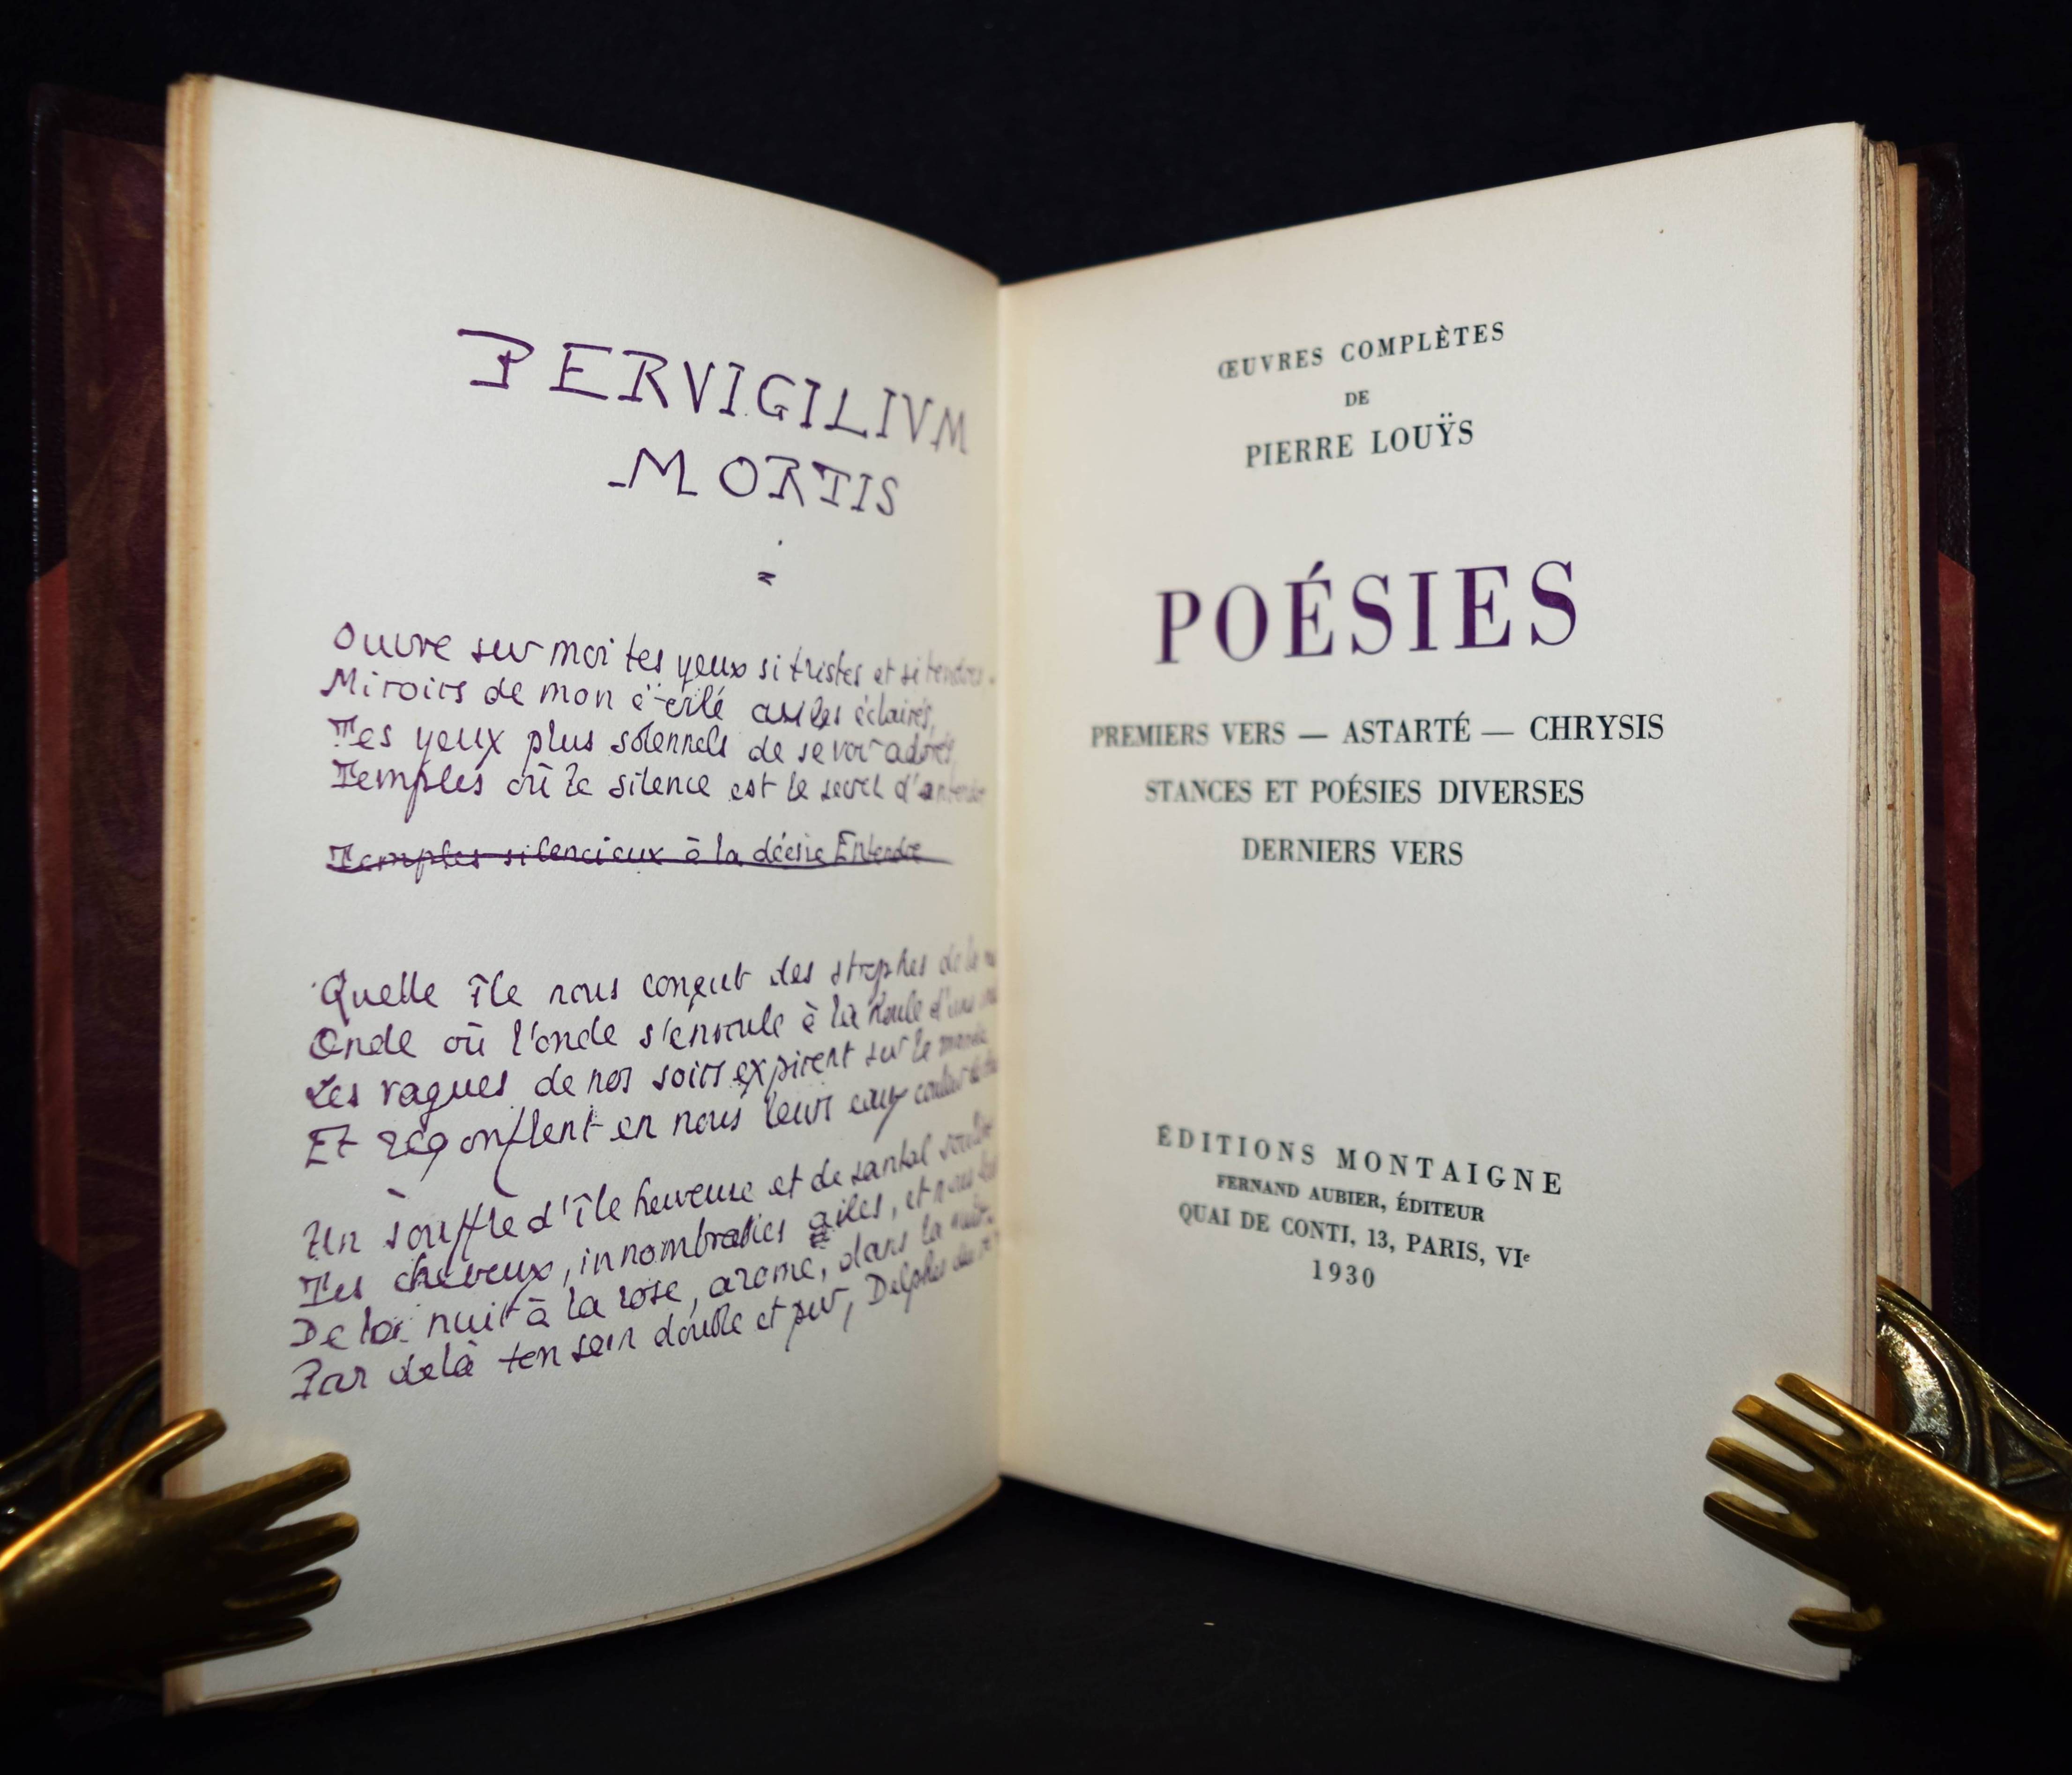 PERVIGILIVM
MORTIS
Ouvre sur moi tes yeux si tristes et si tendres
Miroirs de mon étoile asiles éclairés,
Tes yeux plus solennels de se voir adorés,
Temples où le silence est le secret d'entendre
Temples silencieux à la déesse Entendre
Quelle île nous conçut des strophes de la
Onde où l'onde s'enroule à la houle d'une
Les vagues de nos soirs expirent sur le monde
Et regonflent en nous leurs eaux couleur de
Un souffle d'île heureuse et de santal soulève
Tes cheveux, innombrables ailes, et nous
De la nuit à la rose, arome, dans la nuit,
Par delà ton sein double et pur, Delphes du
ŒUVRES COMPLÈTES
DE
PIERRE LOUŸS
POÉSIES
PREMIERS VERS — ASTARTÉ — CHRYSIS
STANCES ET POÉSIES DIVERSES
DERNIERS VERS
ÉDITIONS MONTAIGNE
FERNAND AUBIER, ÉDITEUR
QUAI DE CONTI, 13, PARIS, VIe
1930